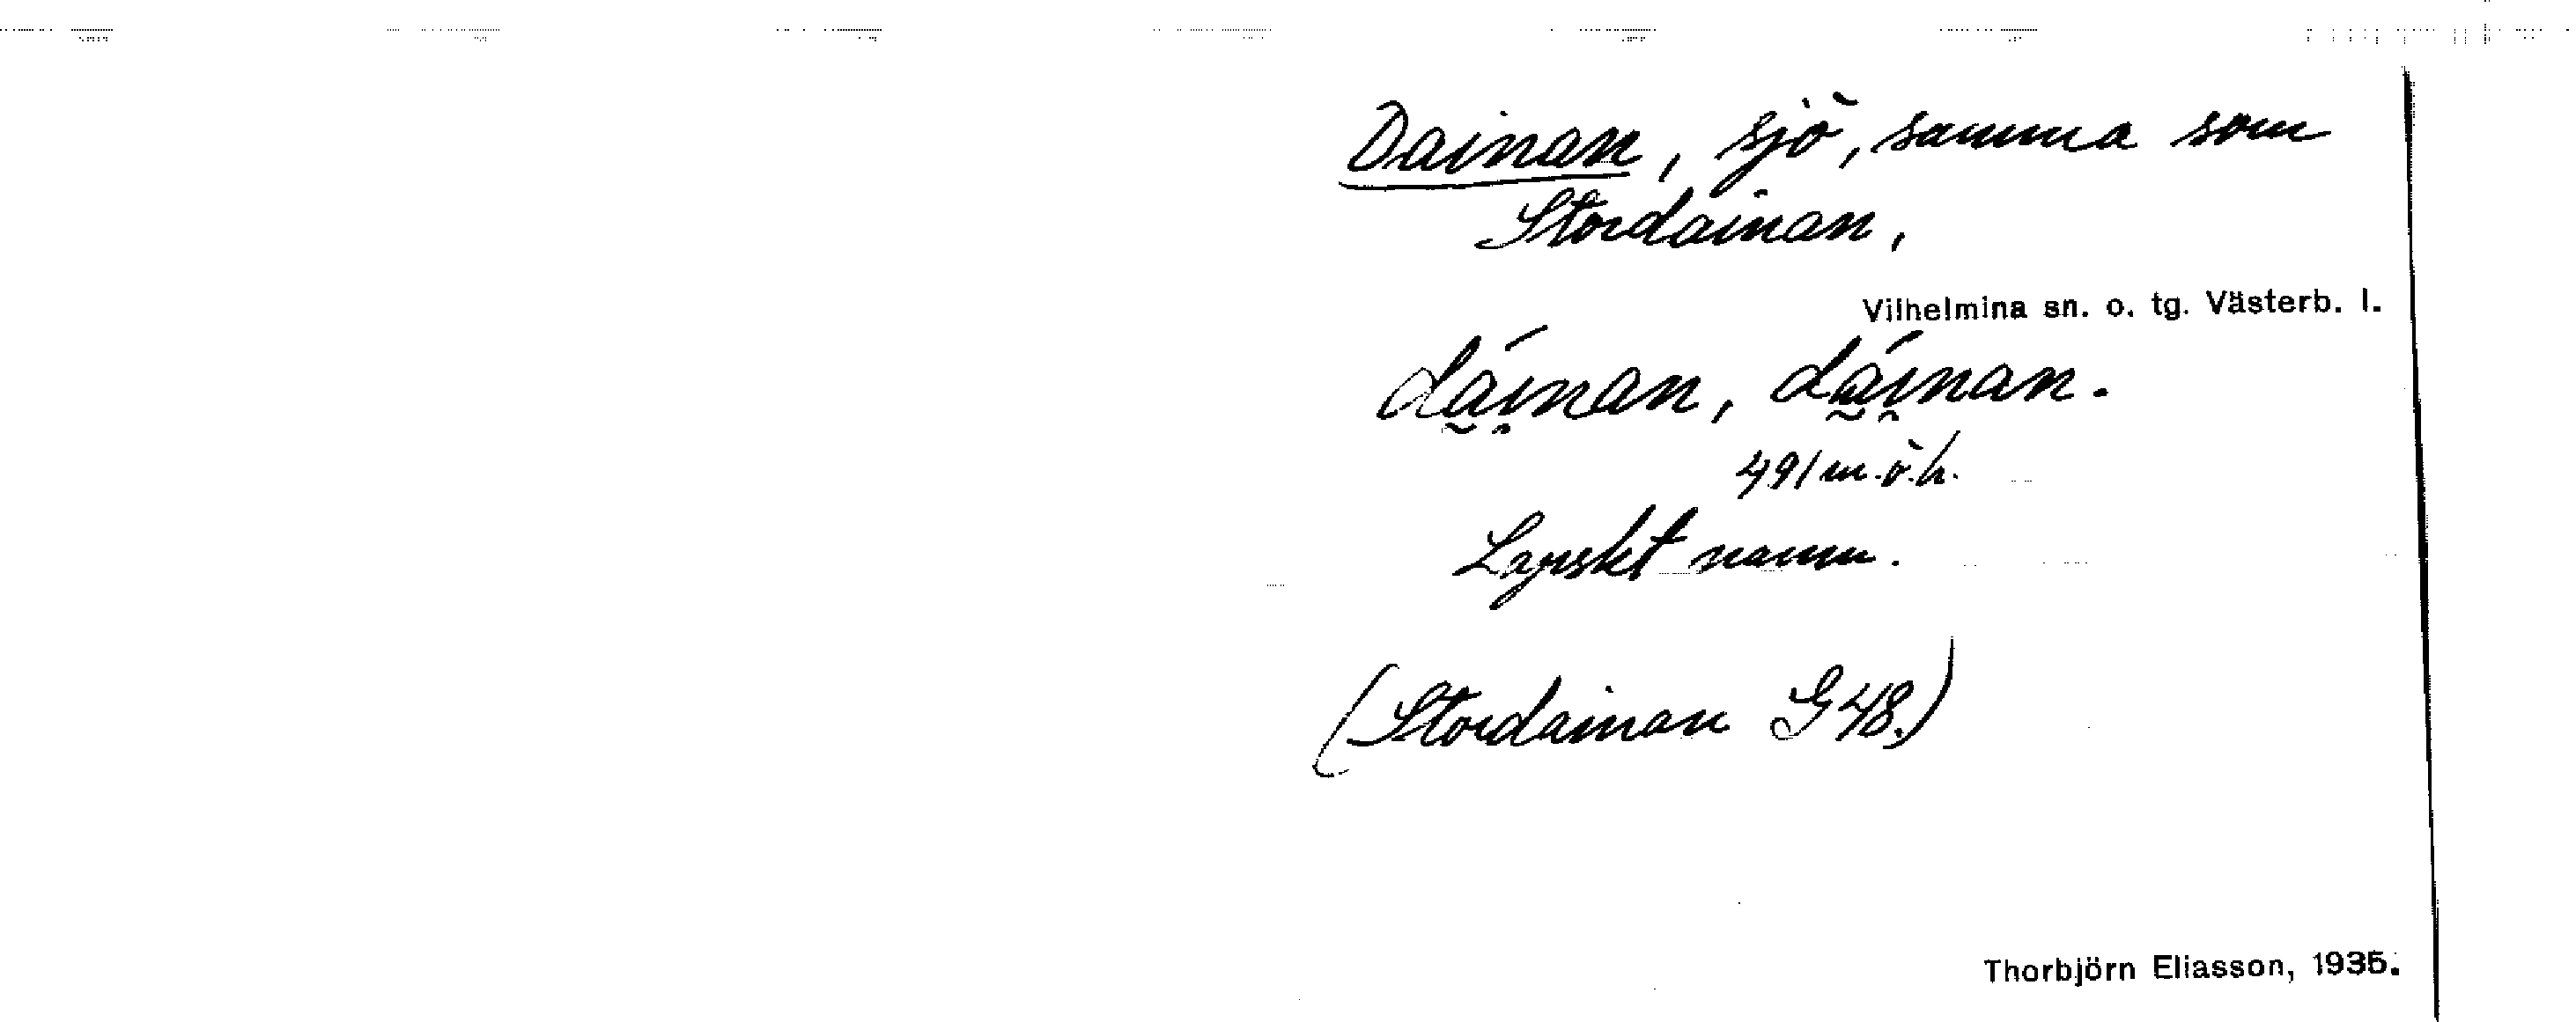 Dainan, sjö, samma som
Stordainan,
Vilhelmina sn. o. tg. Västerb. l.
dá̰i̯nan, dá̰i̯nan.
491 m.ö.h.
Lapskt namn.
(Stordainan G48.)
Thorbjörn Eliasson, 1935.